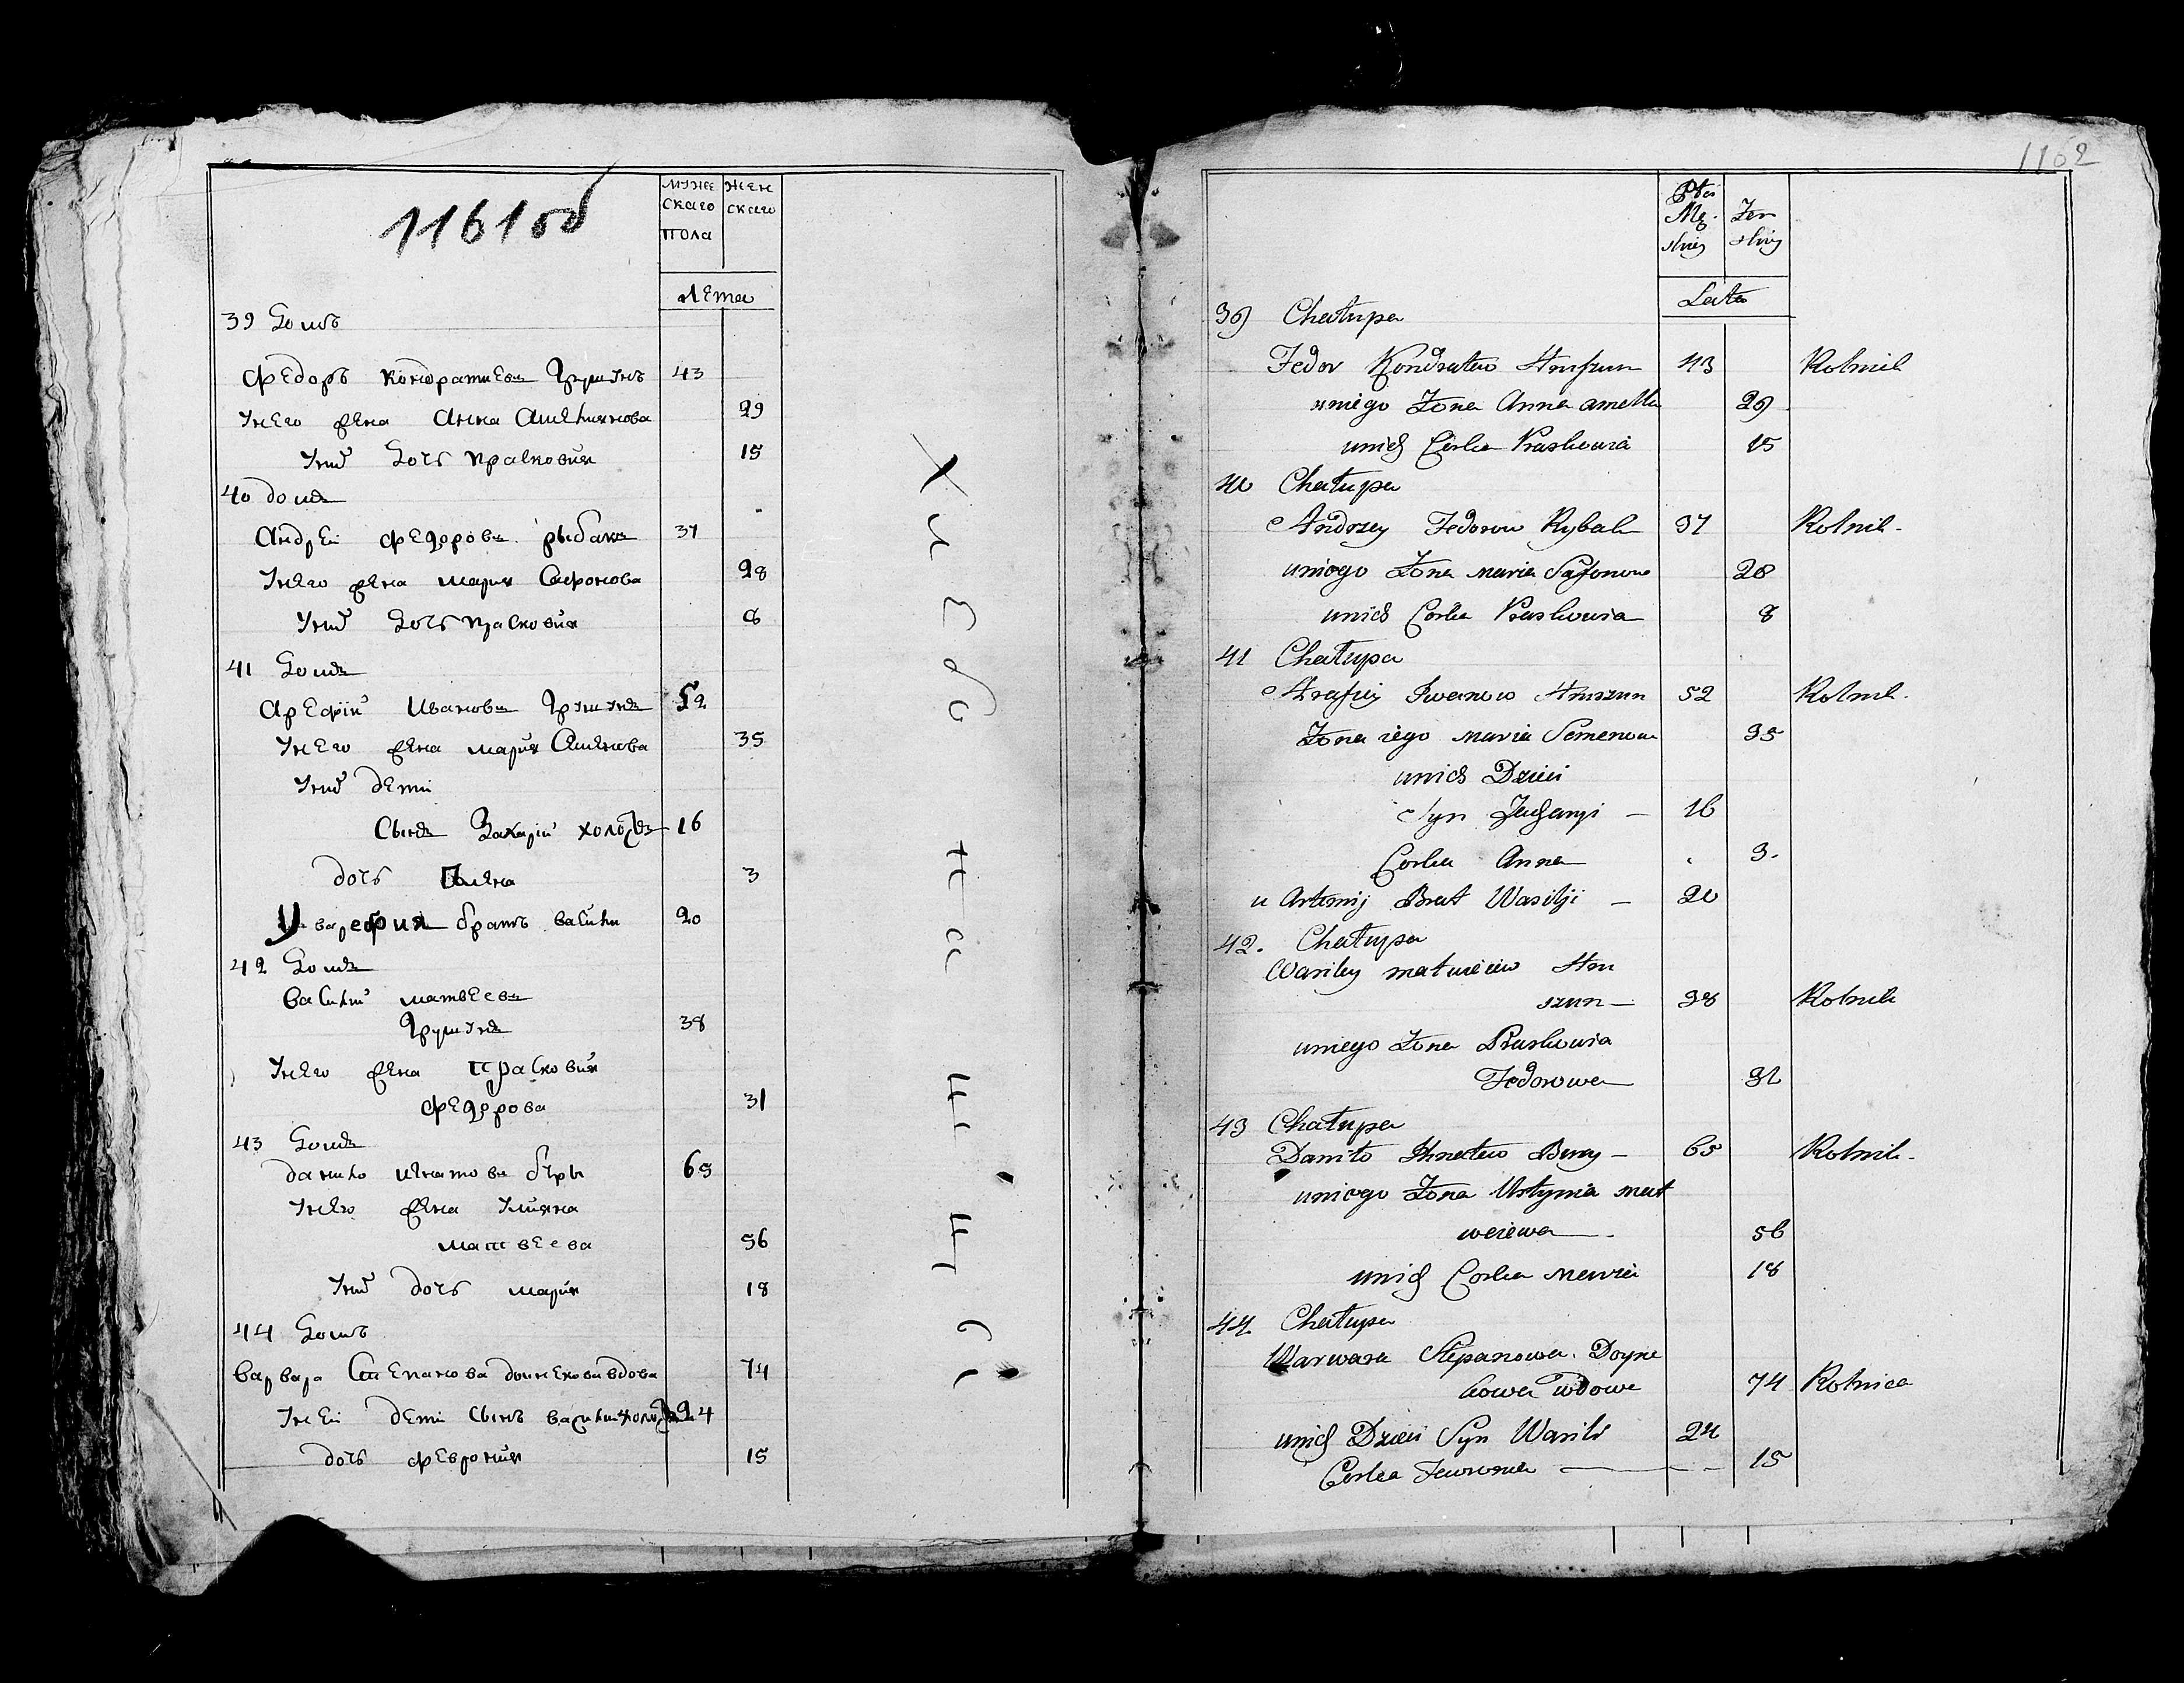 1161об
муже
скаго
пола
жен
скаго
Лета
39 Домъ
Федоръ Кондратиевъ Грушунъ 43
Унего жена Анна Амельянова 29
Уних дочь Прасковия 15
40 домъ
Андрей Федоровъ рыбакъ 37
Унего жена Мария Сафронова 28
Уних дочь Прасковия 8
41 Домъ
Арефий Ивановъ Грушунъ 52
Унего жена Мария Семенова 35
Уних дети
Сынъ Захарий холостъ 16
дочь 3
У Арефия братъ васили 20
42 Домъ
Василий Матвеевъ
Грушунъ 38
Унего жена Прасковия
Федорова 31
43 Домъ
данило Игнатовъ 65
Унего жена
Матвеева 56
Уних дочь Мария 18
44 Домъ
Варвара Степанова вдова 74
Уней дети Сынъ васили холостъ 24
дочь Феврония 15
Хлебопашци
1162
Płci
Mę-
skiey
Żeń
skiey
Lata
39 Chałupa
Fedor Kondratew Hruszun 43 Rolnik
uniego Żona Anna 29
unich Córka Praskowia 15
40 Chałupa
Andrzey Fedorow Rybak 37 Rolnik
uniego Żona Maria Safonow 28
unich Corka Praskowia 8
41 Chałupa
Arafiy Iwanow Hruszun 52 Rolnik
Żona iego Maria Semenowa 35
unich Dzieci
Syn Zacharyi 16
Corka Anna 3
u Brat Wasilji 20
42. Chałupa
Wasiley Matwieiew Hru
szun 38 Rolnik
uniego Żona Praskowia
Fedorowa 31
43 Chałupa
Daniło Ihnatew 65 Rolnik
uniego Żona Ustynia Mat
weiewa 56
unich Corka Maria 18
44 Chałupa
Warwara Stepanowa Doyne
kowa wdowa 74 Rolnica
unich Dzieci Syn Wasili 24
Corka 15